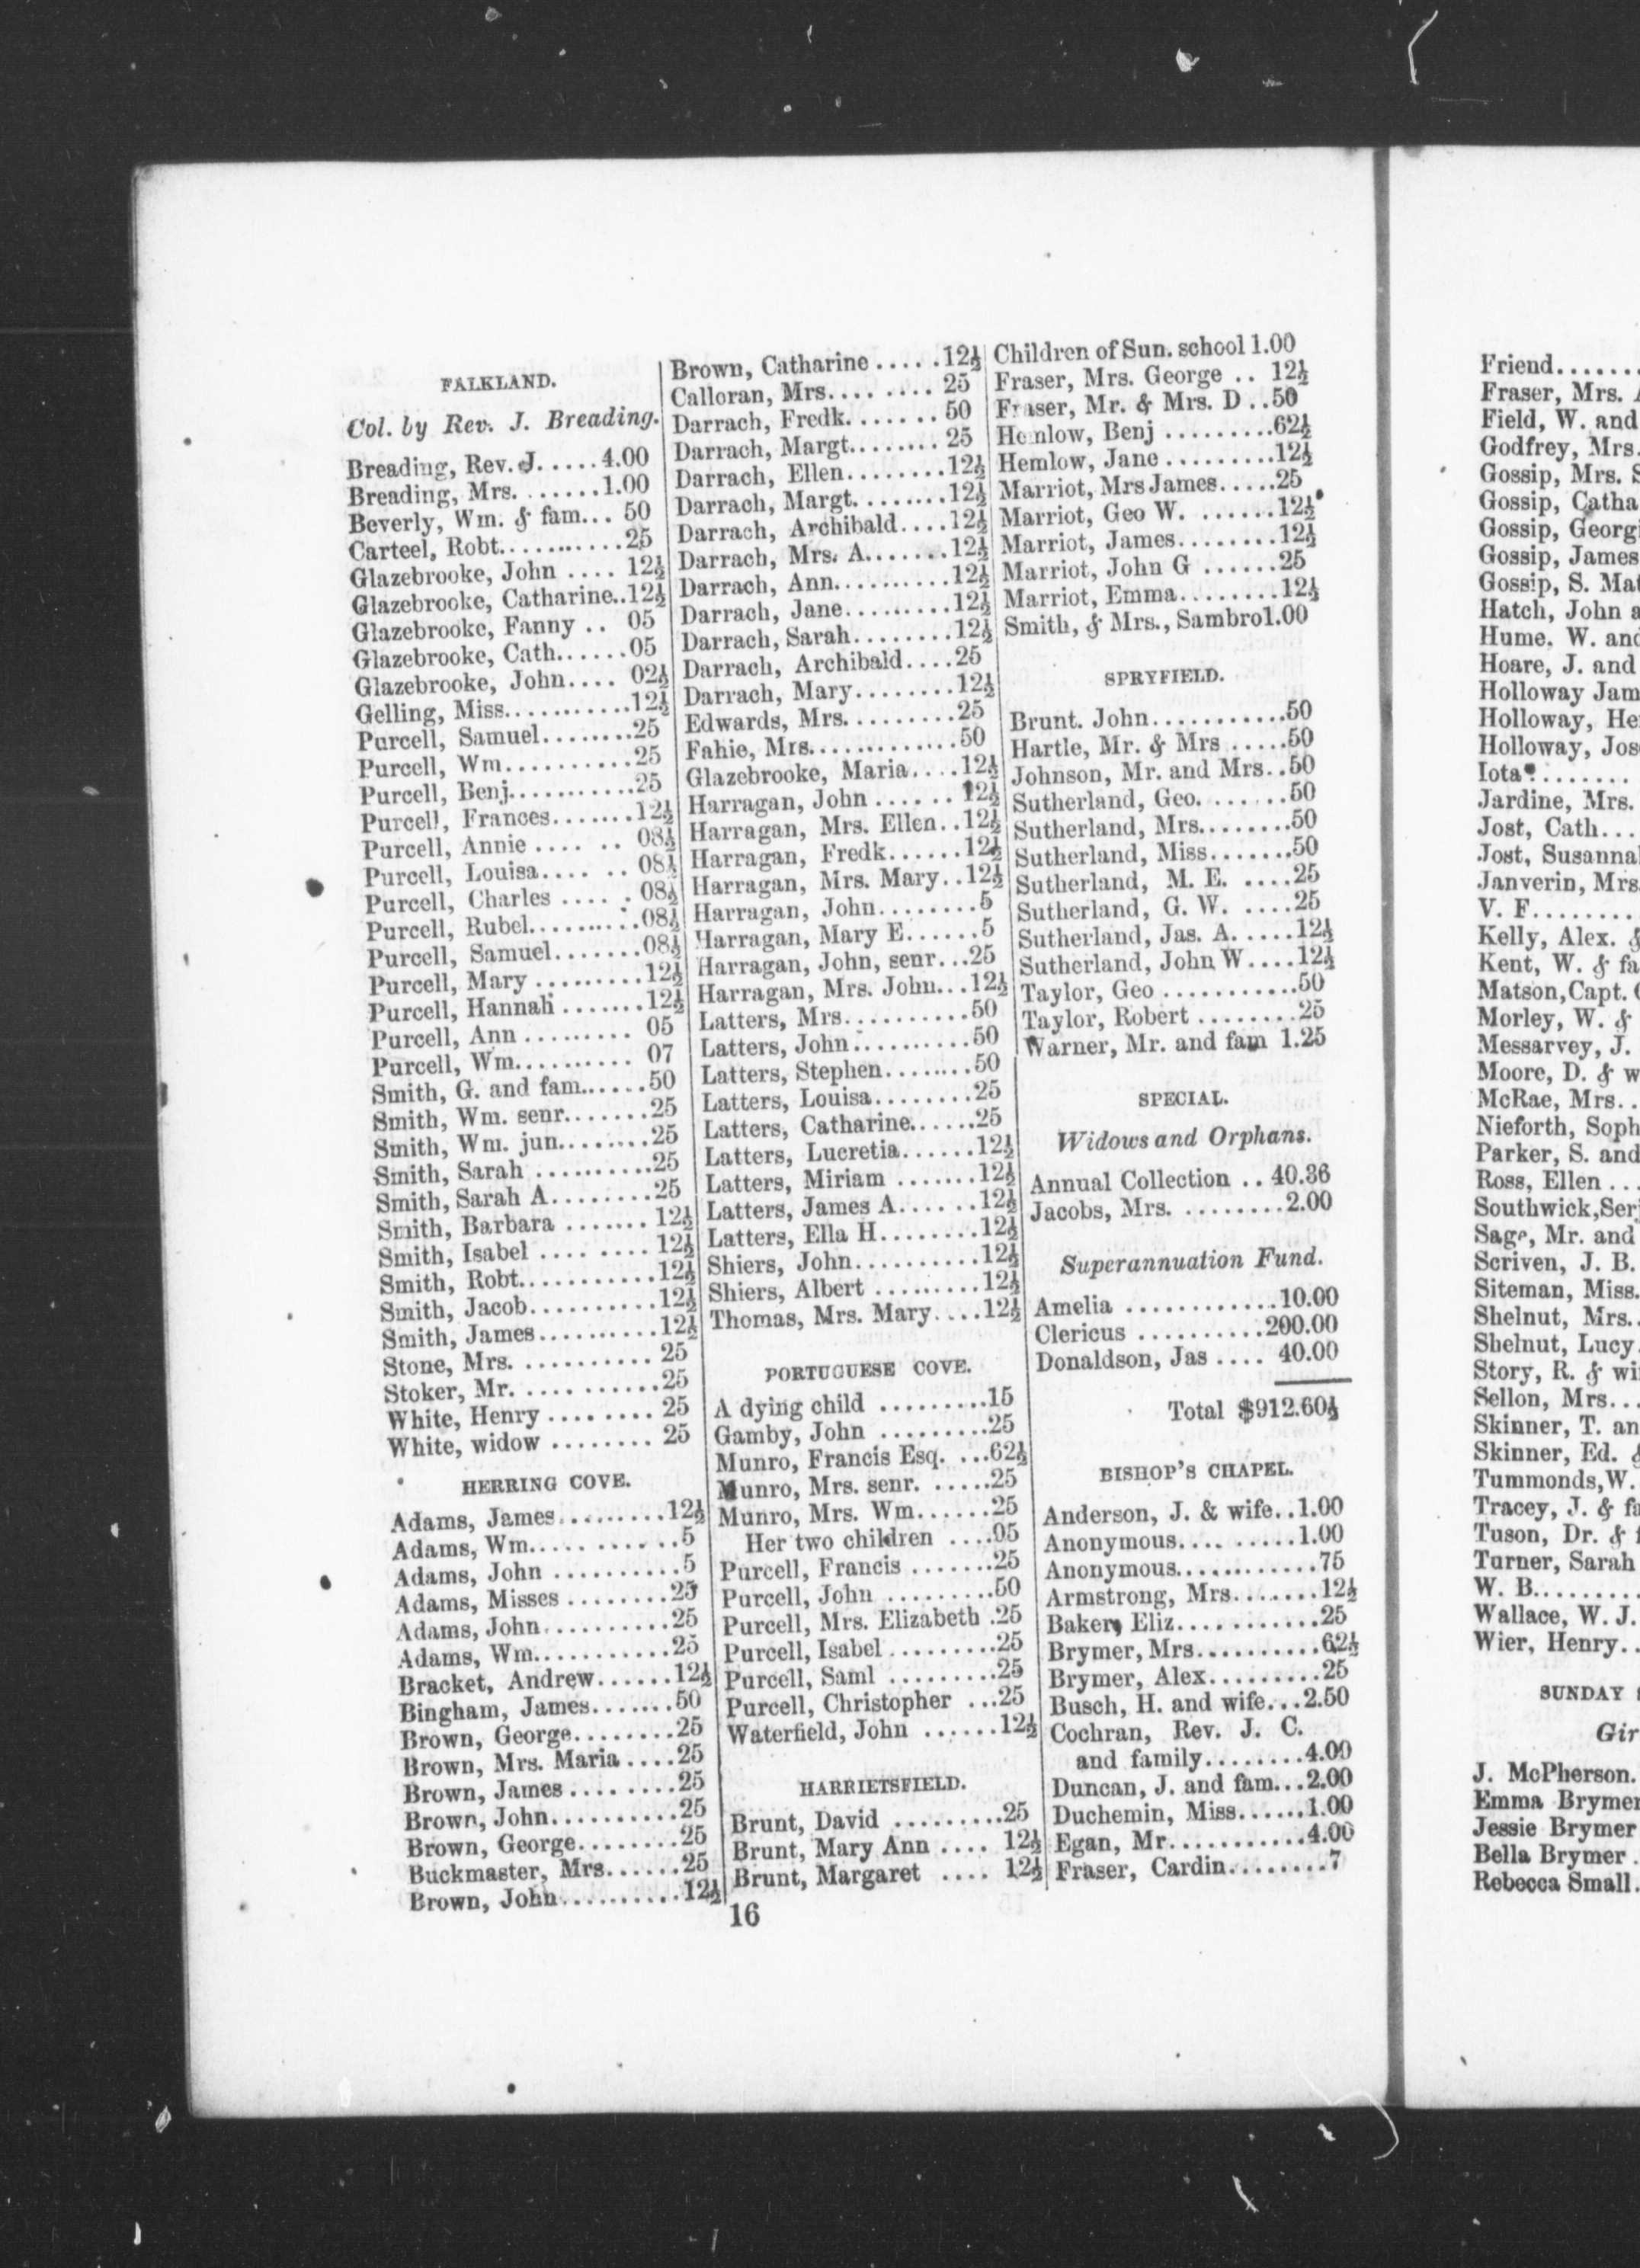 FALKLAND.
Col. by Rev. J. Breading.
Breading, Rev. J.....4.00
Breading, Mrs. ......1.00
Beverly, Wm. & fam... 50
Carteel, Robt..........25
Glazebrooke, John .... 12½
Glazebrooke, Catharine..12½
Glazebrooke, Fanny .. 05
Glazebrooke, Cath......05
Glazebrooke, John.... 02½
Gelling, Miss...........12½
Purcell, Samuel.........25
Purcell, Wm..........25
Purcell, Benj...........25
Purcell, Frances.......12½
Purcell, Annie .... .. 08½
Purcell, Louisa.... .. 08½
Purcell, Charles .... . 08½
Purcell, Rubel..........08½
Purcell, Samuel.......08½
Purcell, Mary .........12½
Purcell, Hannah .......12½
Purcell, Ann ......... 05
Purcell, Wm.......... 07
Smith, G. and fam......50
Smith, Wm. senr.......25
Smith, Wm. jun........25
Smith, Sarah ..........25
Smith, Sarah A.........25
Smith, Barbara ....... 12½
Smith, Isabel ........ 12½
Smith, Robt...........12½
Smith, Jacob..........12½
Smith, James..........12½
Stone, Mrs. .......... 25
Stoker, Mr. ..........25
White, Henry ........ 25
White, widow ........ 25
HERRING COVE.
Adams, James.........12½
Adams, Wm........... ..5
Adams, John ..........5
Adams, Misses .........25
Adams, John..........25
Adams, Wm...........25
Bracket, Andrew......12½
Bingham, James.......50
Brown, George.........25
Brown, Mrs. Maria ....25
Brown, James .........25
Brown, John..........25
Brown, George........25
Buckmaster, Mrs......25
Brown, John..........12½
Brown, Catharine .....12½
Calloran, Mrs......... 25
Darrach, Fredk....... 50
Darrach, Margt........ 25
Darrach, Ellen........12½
Darrach, Margt........12½
Darrach, Archibald....12½
Darrach, Mrs. A.......12½
Darrach, Ann..........12½
Darrach, Jane.........12½
Darrach, Sarah........12½
Darrach, Archibald....25
Darrach, Mary........12½
Edwards, Mrs.........25
Fahie, Mrs.............50
Glazebrooke, Maria....12½
Harragan, John ......12½
Harragan, Mrs. Ellen..12½
Harragan, Fredk......12½
Harragan, Mrs. Mary..12½
Harragan, John........5
Harragan, Mary E......5
Harragan, John, senr...25
Harragan, Mrs. John...12½
Latters, Mrs..........50
Latters, John..........50
Latters, Stephen........50
Latters, Louisa........25
Latters, Catharine......25
Latters, Lucretia......12½
Latters, Miriam .......12½
Latters, James A......12½
Latters, Ella H........12½
Shiers, John..........12½
Shiers, Albert .........12½
Thomas, Mrs. Mary....12½
PORTUGUESE COVE.
A dying child .........15
Gamby, John .........25
Munro, Francis Esq. ...62½
Munro, Mrs. senr. .....25
Munro, Mrs. Wm......25
Her two children ....05
Purcell, Francis .......25
Purcell, John .........50
Purcell, Mrs. Elizabeth .25
Purcell, Isabel.........25
Purcell, Saml .........25
Purcell, Christopher ...25
Waterfield, John ......12½
HARRIETSFIELD.
Brunt, David .........25
Brunt, Mary Ann .... 12½
Brunt, Margaret .... 12½
Children of Sun. school 1.00
Fraser, Mrs. George .. 12½
Fraser, Mr. & Mrs. D ..50
Hemlow, Benj .........62½
Hemlow, Jane .........12½
Marriot, Mrs James.....25
Marriot, Geo W. ......12½
Marriot, James........12½
Marriot, John G ......25
Marriot, Emma........12½
Smith, & Mrs., Sambro1.00
SPRYFIELD.
Brunt. John...........50
Hartle, Mr. & Mrs .....50
Johnson, Mr. and Mrs..50
Sutherland, Geo. ......50
Sutherland, Mrs........50
Sutherland, Miss.......50
Sutherland, M. E. ....25
Sutherland, G. W. ....25
Sutherland, Jas. A.....12½
Sutherland, John W....12½
Taylor, Geo ...........50
Taylor, Robert ........25
Warner, Mr. and fam 1.25
SPECIAL.
Widows and Orphans.
Annual Collection .. 40.36
Jacobs, Mrs. .........2.00
Superannuation Fund.
Amelia ............10.00
Clericus ..........200.00
Donaldson, Jas .... 40.00
Total $912.60½
BISHOP'S CHAPEL.
Anderson, J. & wife..1.00
Anonymous..........1.00
Anonymous............75
Armstrong, Mrs.......12½
Baker, Eliz...........25
Brymer, Mrs..........62½
Brymer, Alex.........25
Busch, H. and wife...2.50
Cochran, Rev. J. C.
and family........4.00
Duncan, J. and fam...2.00
Duchemin, Miss......1.00
Egan, Mr...........4.00
Fraser, Cardin........7
16
Friend......
Fraser, Mrs.
Field, W. and
Godfrey, Mrs.
Gossip, Mrs.
Gossip, Catha
Gossip, Georgi
Gossip, James
Gossip, S. Mat
Hatch, John a
Hume. W. and
Hoare, J. and
Holloway Jam
Holloway, He
Holloway, Jos
Iota.......
Jardine, Mrs.
Jost, Cath...
Jost, Susanna
Janverin, Mrs.
V. F........
Kelly, Alex. &
Kent, W. & fa
Matson, Capt.
Morley, W. &
Messarvey, J.
Moore, D. & w
McRae, Mrs..
Nieforth, Soph
Parker, S. and
Ross, Ellen ...
Southwick, Ser
Sage, Mr. and
Scriven, J. B.
Siteman, Miss.
Shelnut, Mrs..
Shelnut, Lucy.
Story, R. & wi
Sellon, Mrs...
Skinner, T. an
Skinner, Ed. &
Tummonds, W.
Tracey, J. & fa
Tuson, Dr. & f
Turner, Sarah
W. B.........
Wallace, W. J.
Wier, Henry..
SUNDAY
Gir
J. McPherson.
Emma Brymer
Jessie Brymer
Bella Brymer .
Rebecca Small.